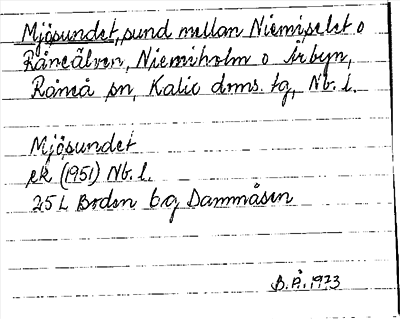 Mjösundet, sund mellan Niemiselet o
Råneälven, Niemiholm o Årbyn,
Råneå sn, Kalix dms. tg, Nb. l.
Mjösundet
ek (1951) Nb. l.
25 L Boden bg Dammåsen
B.Å. 1973